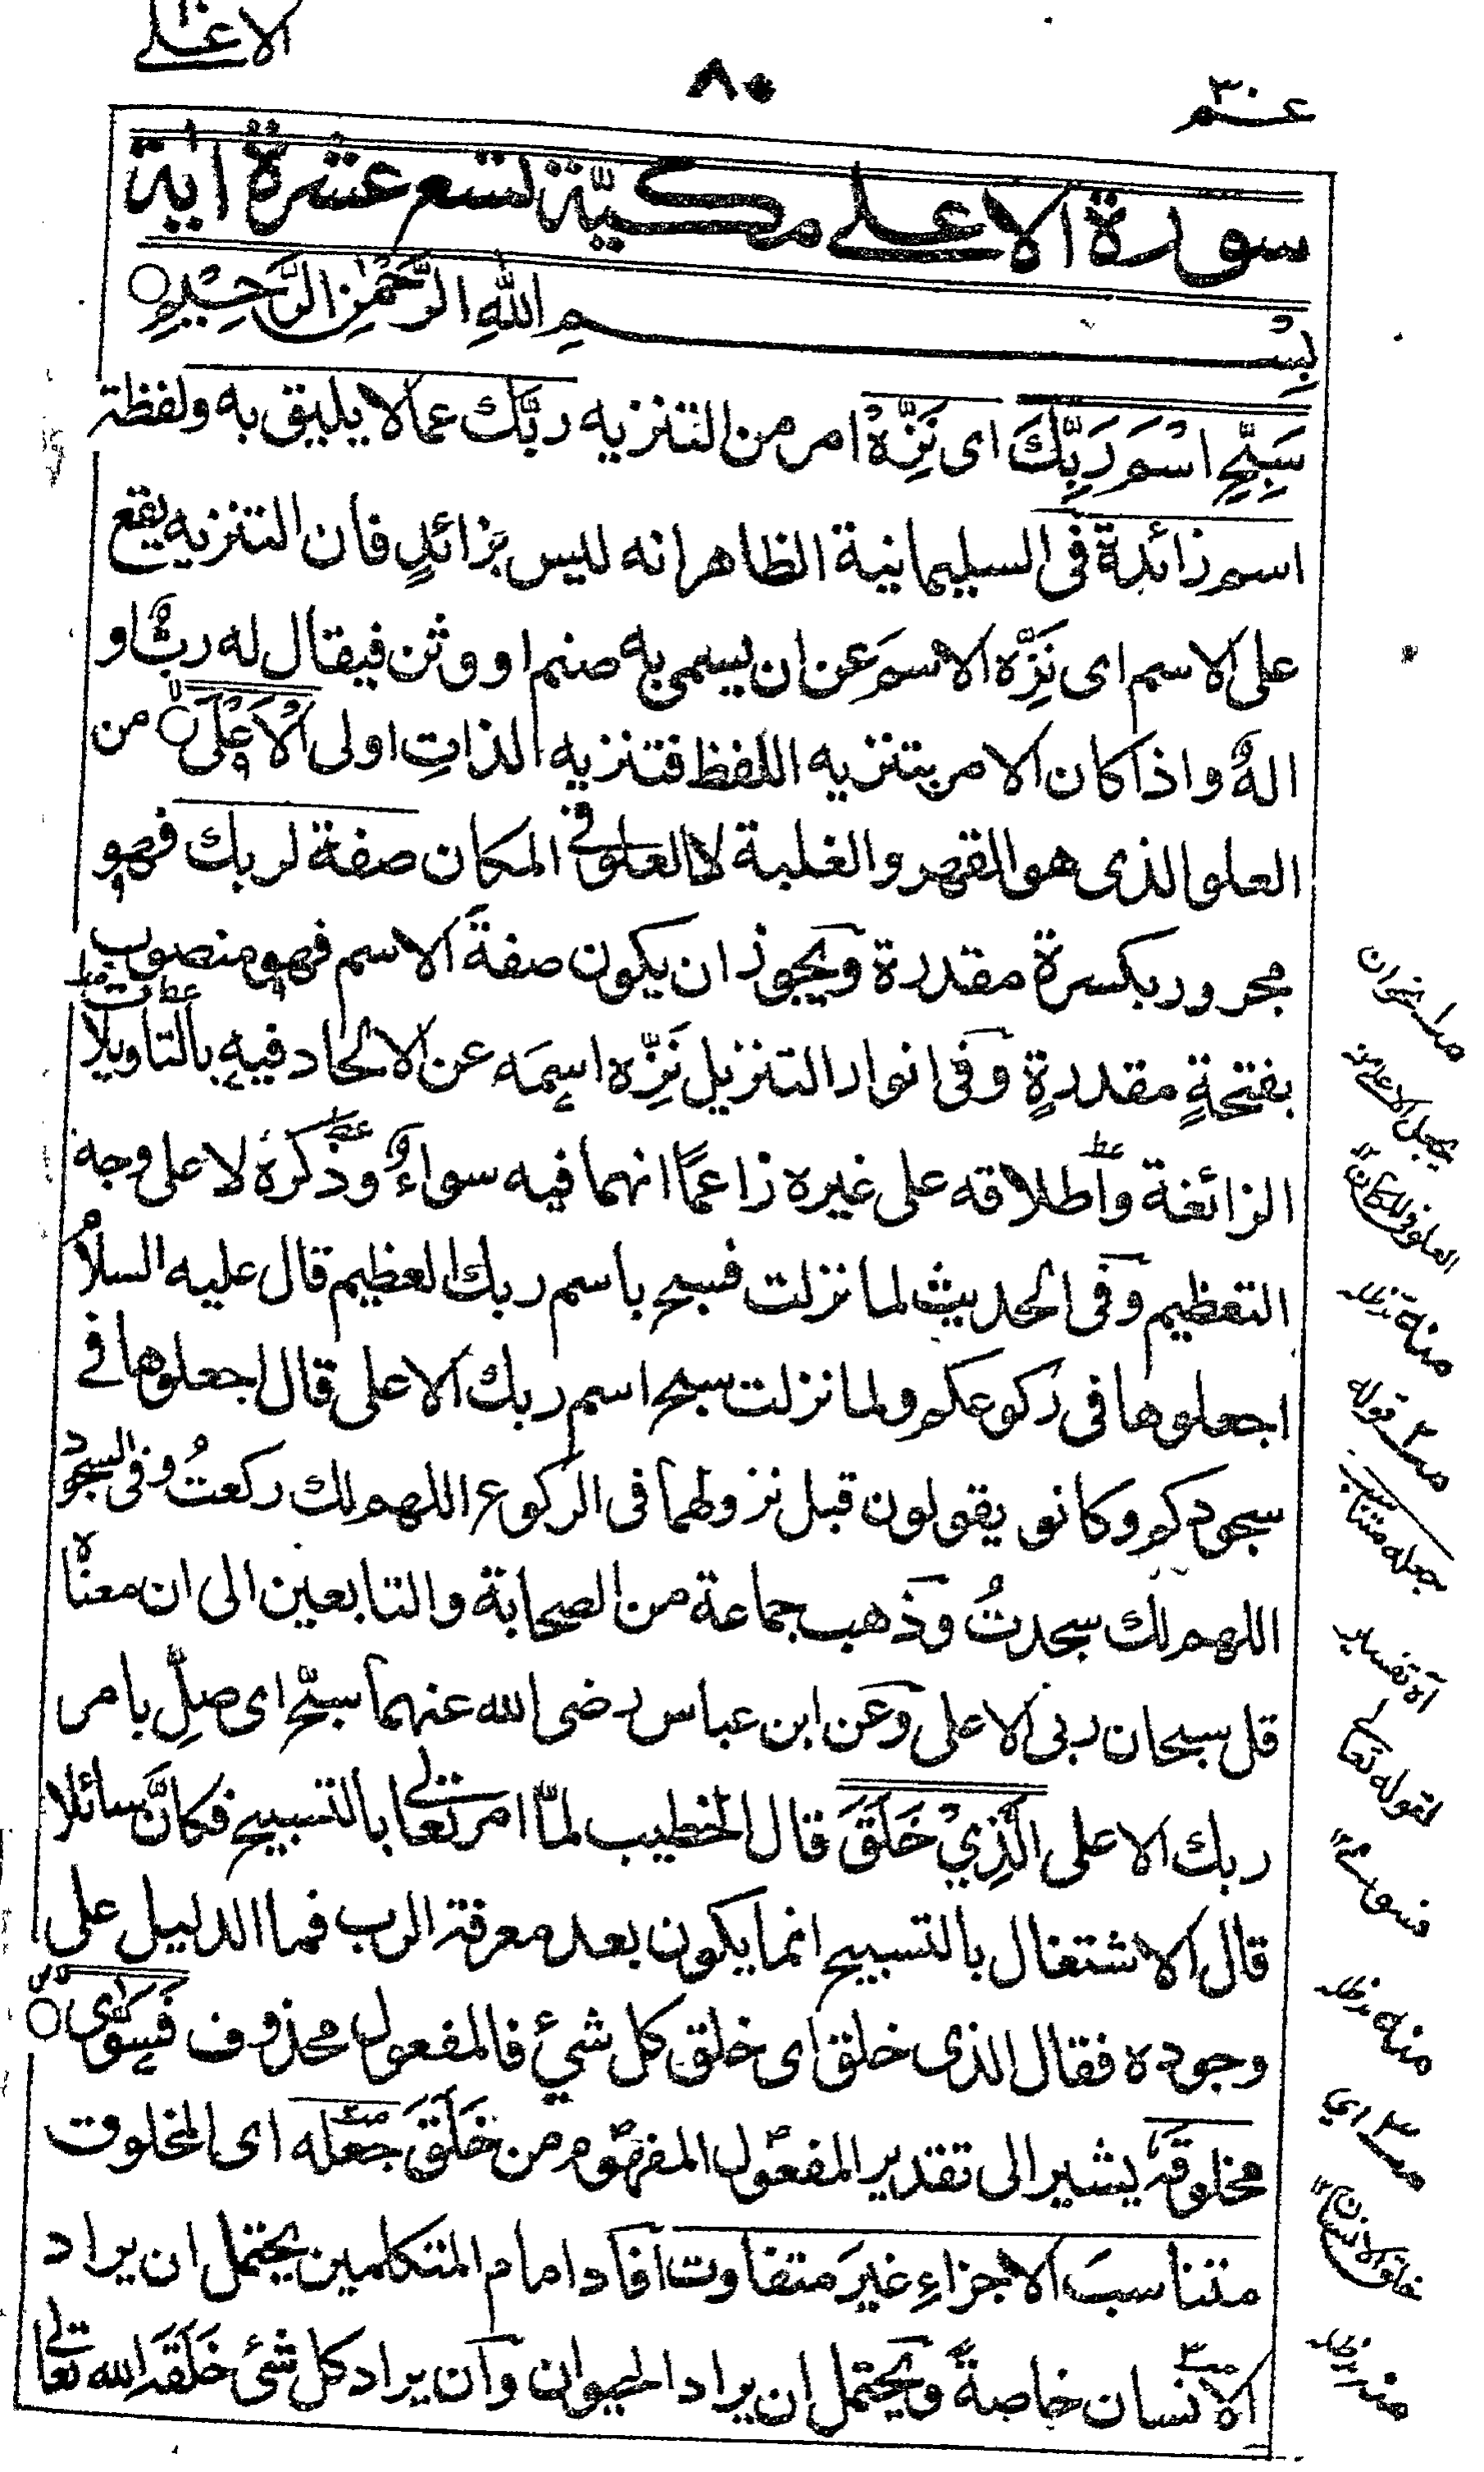 الاعلے
٨٠
عـم ٣٠
سورة الاعلے مكيّة تسع عشرة اية
بِسْـــمِ اللهِ الرَّحْمٰنِ الرَّحِيْمِ
سَبِّحِ اسْمَ رَبِّكَ اى نَزِّهْ امر من التنزيه ربَّك عمالا يليق به ولفظة
اسم زائدة فى السليمانية الظاهر انه ليس بزائدٍ فان التنزيه يقع
على الاسم اى نَزِّه الاسمَ عن ان يسمى به صنم او وثن فيقال له ربٌّ او
الهٌ واذا كان الامر بتنزيه اللفظ فتنزيه الذاتِ اولى الْاَعْلَى من
العلو الذى هو القهر والغلبة لا العلو فى المكان صفة لربك فهو
مجرور بكسرة مقدرة ويجوز ان يكون صفةً لاسم فهو منصوب
بفتحةٍ مقدرةٍ وفى انوار التنزيل نَزِّه اسمَه عن الالحاد فيه بالتاويلات
الزائغة واطلاقه على غيره زاعمًا انهما فيه سواءٌ وذكرهٗ لا على وجه
التعظيم وفى الحديث لما نزلت فسبح باسم ربك العظيم قال عليه السلام
اجعلوها فى ركوعكم ولما نزلت سبح اسم ربك الاعلى قال اجعلوها فے
سجودكم وكانو يقولون قبل نزولهما فى الركوع اللهم لك ركعتُ وفى السجود
اللهم لك سجدتُ وذهب جماعة من الصحابة والتابعين الى ان معناه
قل سبحان ربى الاعلى وعن ابن عباس رضى الله عنهما سبّح اى صلِّ بامر
ربك الاعلى الَّذِيْ خَلَقَ قال الخطيب لمّا امر تعالى بالتسبيح فكانَّ سائلا
قال الاشتغال بالتسبيح انما يكون بعد معرفة الرب فما الدليل على
وجوده فقال الذى خلق اى خلق كل شئ فالمفعول محذوف فَسَوّٰى
مخلوقَهٗ يشير الى تقدير المفعول المفهوم من خَلَقَ جعله اى المخلوق
متناسبَ الاجزاءِ غيرَ متفاوت افاد امام المتكلمين يحتمل ان يراد
الانسان خاصةً ويحتمل ان يراد الحيوان وان يراد كل شئ خَلَقَه الله تعالى
يجعل الاعلى من
العلو فى المكان
منه مدظله
مـ٢ قوله
جعله متناسب
آه تفسير
لقوله تعالى
فسوى
منه مدظله
مـ٣ اى
خلق الانسان
منه مدظله